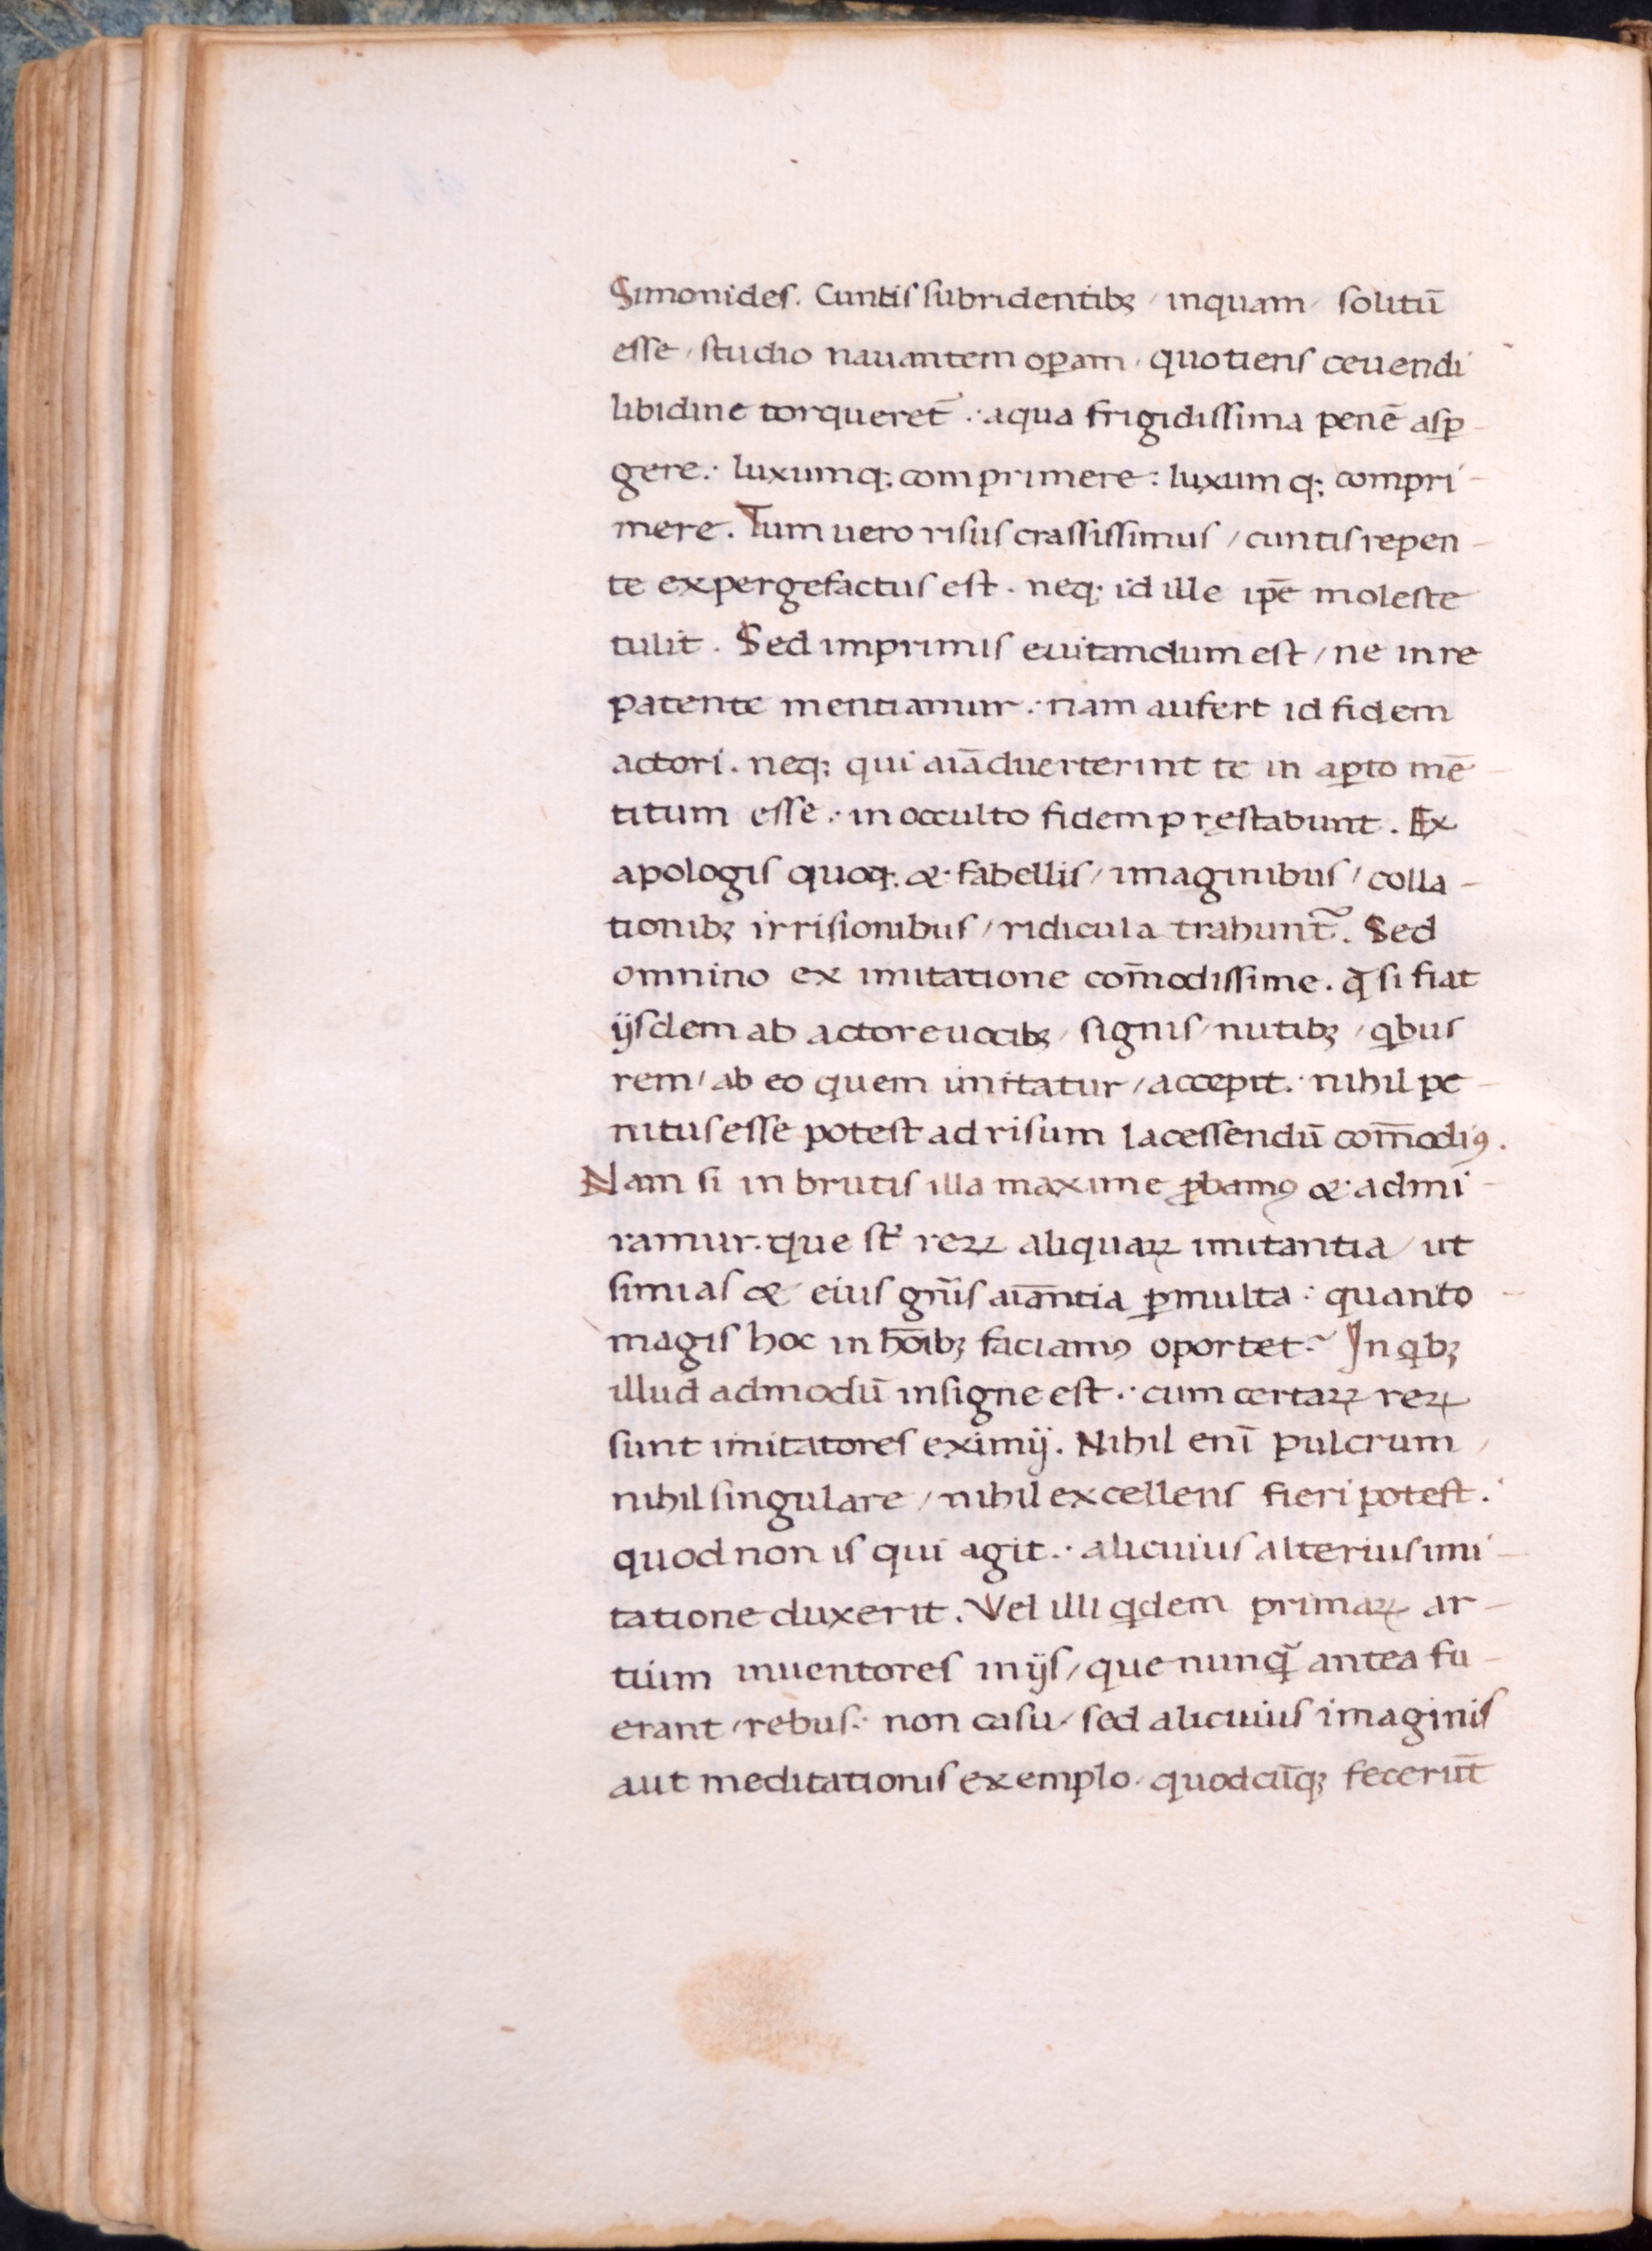 Simonides. Cuntis subridentibꝫ / inquam / solitū
esse / studio nauantem oꝑam / quotiens ceuendi
libidine torqueret̄ .· aqua frigidissima penē asꝑ-
gere .· luxumqꝫ comprimere : luxumqꝫ compri-
mere. Tum uero risus crassissimus / cuntis repen-
te expergefactus est. neqꝫ id ille ip̄e moleste
tulit. Sed imprimis euitandum est / ne in re
patente mentiamur .· nam aufert id fidem
actori. neqꝫ qui aīaduerterint te in aꝑto mē-
titum esse .· in occulto fidem pręstabunt. Ex
apologis quoqꝫ & fabellis / imaginibus / colla-
tionibꝫ irrisionibus / ridicula trahunt̄. Sed
omnino ex imitatione com̄odissime. ꝙ si fiat
ijsdem ab actore uocibꝫ / signis / nutibꝫ / qͥbus
rem / ab eo quem imitatur / accepit .· nihil pe-
nitus esse potest ad risum lacessendū com̄odiꝰ.
Nam si in brutis illa maxime ꝓbamꝰ & admi-
ramur .· que st̄ reꝝ aliquaꝝ imitantia / ut
simias & eius gn̄is aīantia ꝑmulta : quanto
magis hoc in hōibꝫ faciamꝰ oportet? In qͥbꝫ
illud admodū insigne est .· cum certaꝝ reꝝ
sunt imitatores eximij. Nihil enī pulcrum /
nihil singulare / nihil excellens fieri potest .·
quod non is qui agit .· alicuius alterius imi-
tatione duxerit. Vel illi qͥdem primaꝝ ar-
tium inuentores in ijs / que nunqᷓ antea fu-
erant / rebus .· non casu / sed alicuius imaginis
aut meditationis exemplo / quodcūqꝫ fecerūt